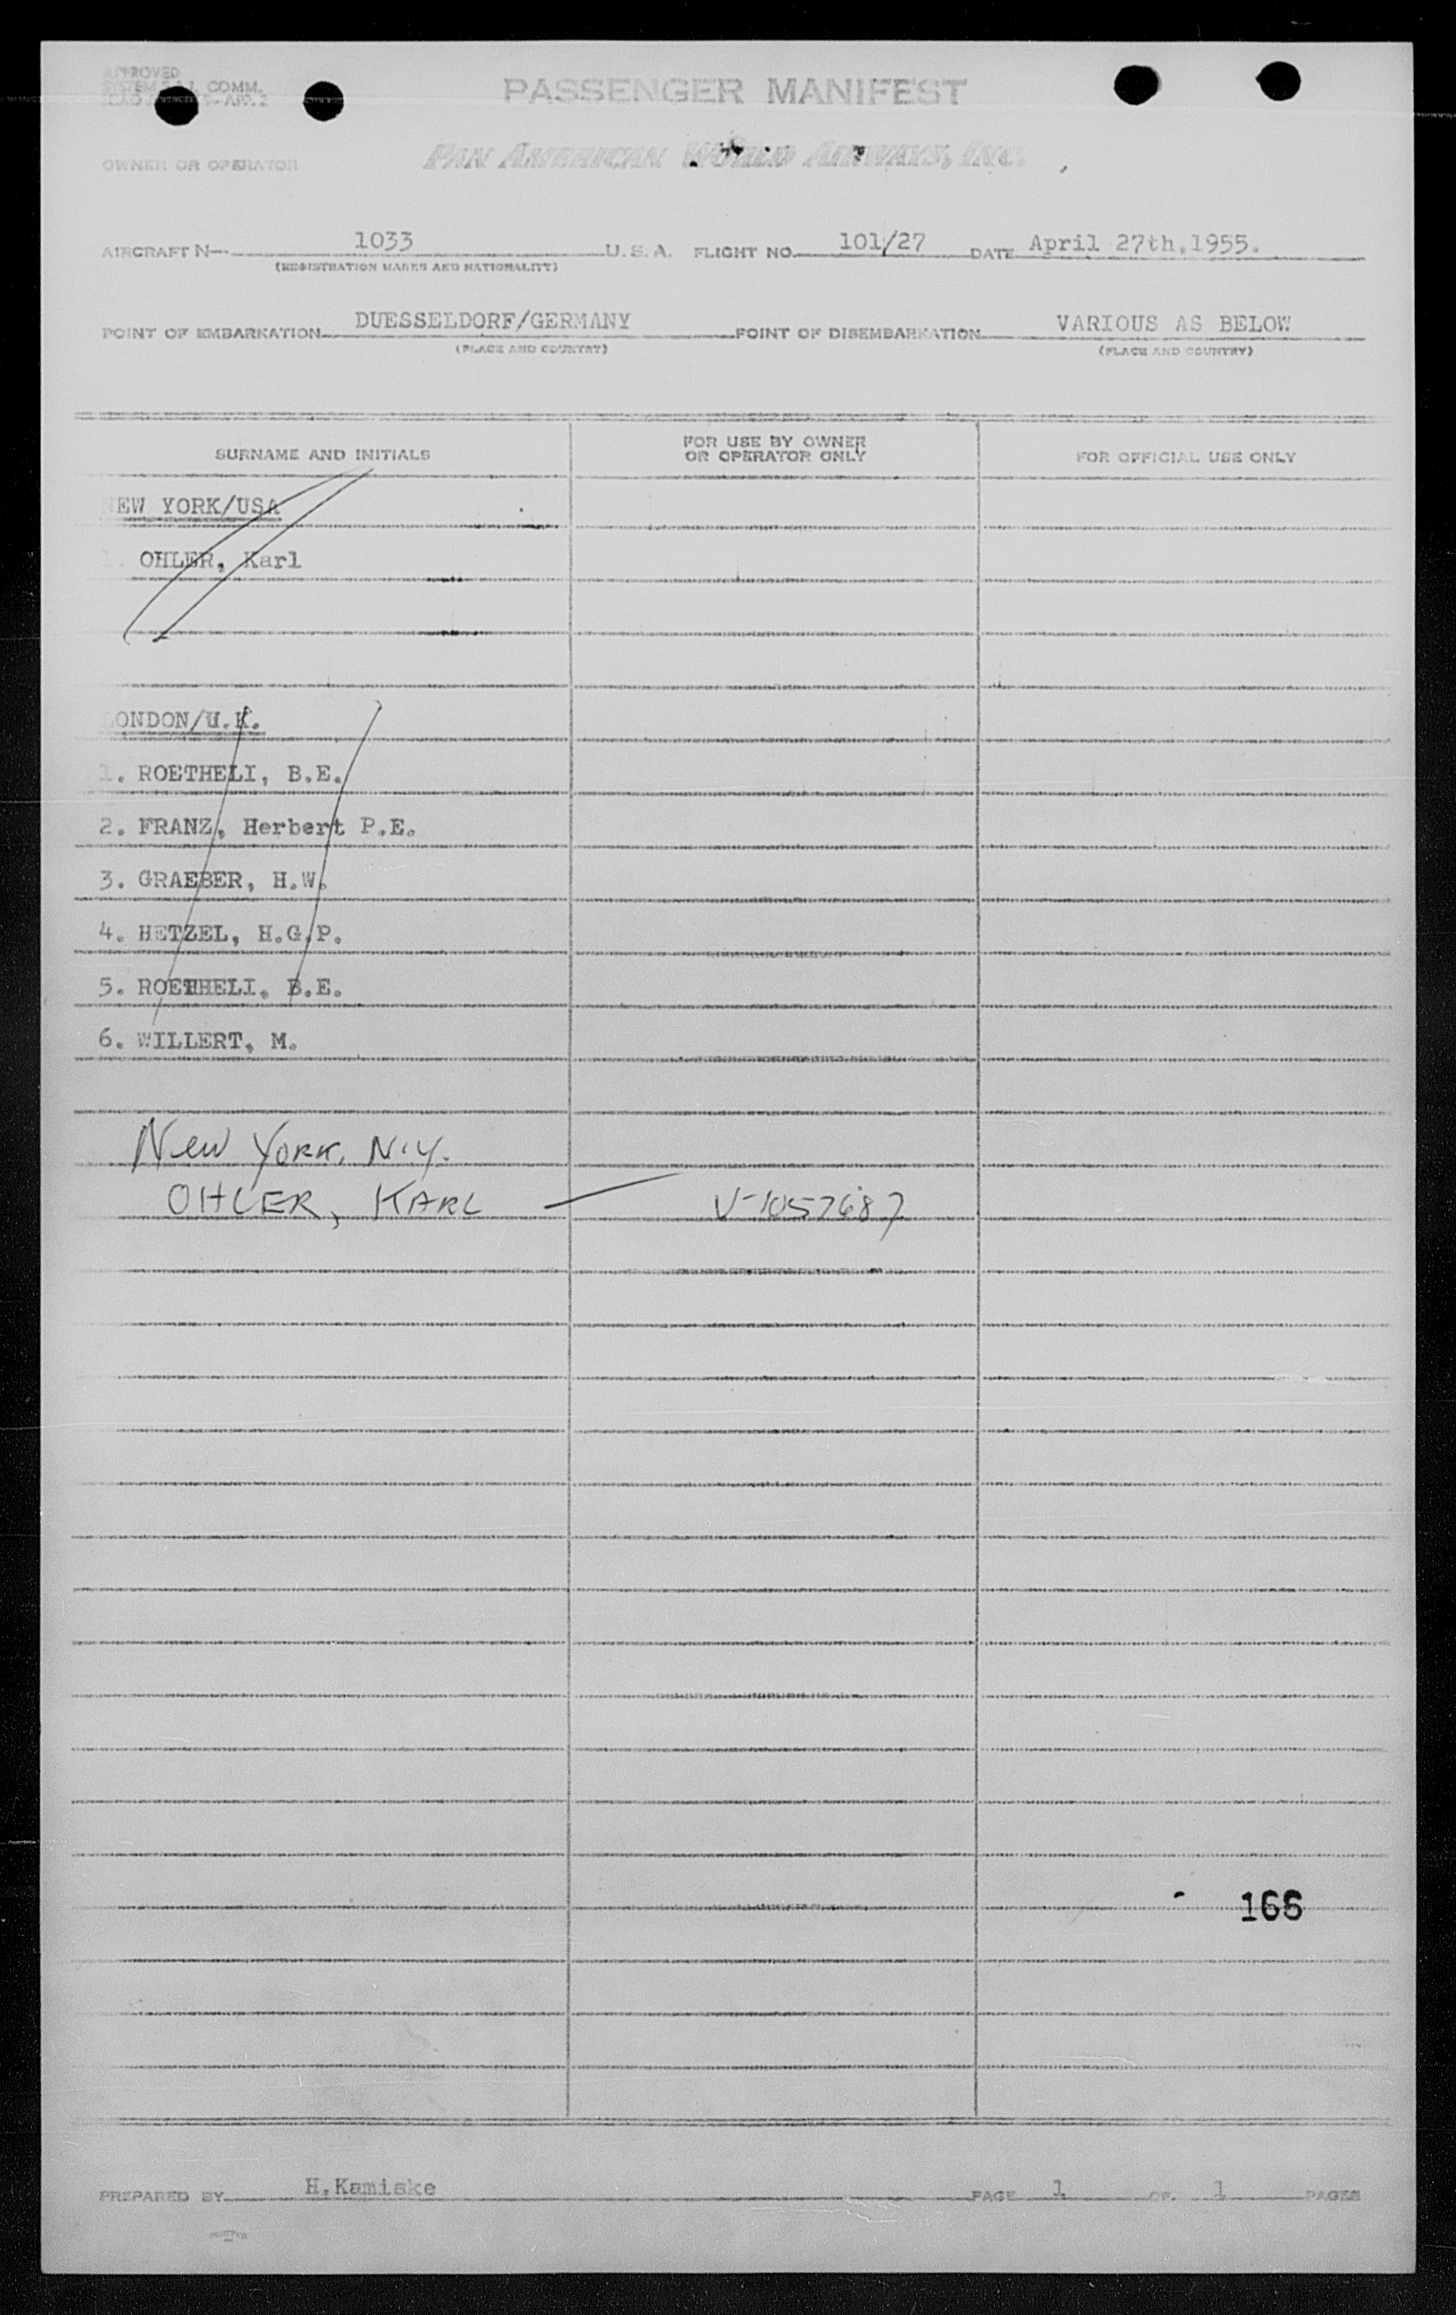 APPROVED
COMM.
PASSENGER MANIFEST
OWNER OR OPERATOR PAN AMERICAN WORLD AIRWAYS, INC.
AIRCRAFT N- 1033 U. S. A. FLIGHT NO. 101/27 DATE April 27th.1955.
(REGISTRATION MARKS AND NATIONALITY)
POINT OF EMBARKATION DUESSELDORF/GERMANY POINT OF DISEMBARKATION VARIOUS AS BELOW
(PLACE AND COUNTRY) (PLACE AND COUNTRY)
SURNAME AND INITIALS FOR USE BY OWNER OR OPERATOR ONLY FOR OFFICIAL USE ONLY
NEW YORK/USA
1. OHLER, Karl
LONDON/U.K.
1. ROETHELI, B.E.
2. FRANZ, Herbert P.E.
3. GRAEBER, H.W.
4. HETZEL, H.G.P.
5. ROETHELI, B.E.
6. WILLERT, M.
New York, N.Y.
OHLER, KARL — V-1057687
166
PREPARED BY H.Kamiske PAGE 1 OF 1 PAGES